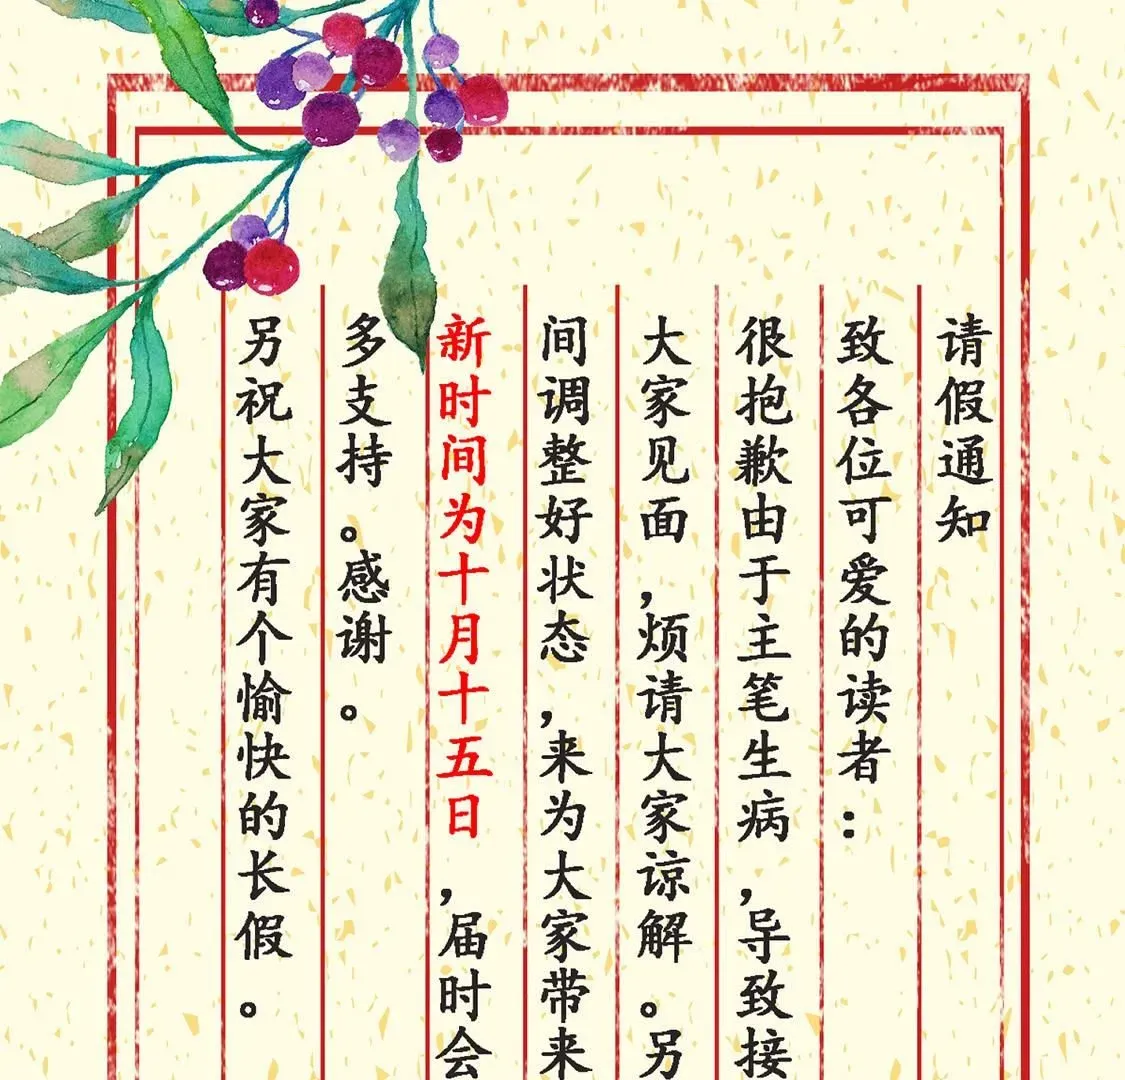 请假通知
致各位可爱的读者:
很抱歉由于主笔生病,导致接
大家见面,烦请大家谅解。另
间调整好状态,来为大家带来
新时间为十月十五日,届时会
多支持。感谢。
另祝大家有个愉快的长假。